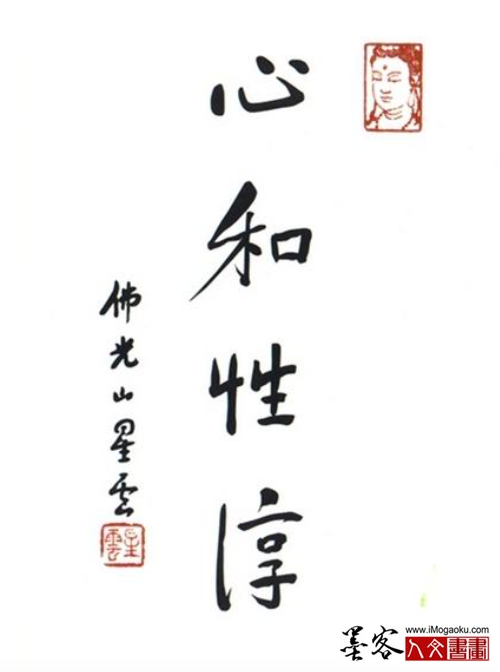 心和性淳
佛光山星雲
星雲
www.iMogaoku.com
墨客
人文書畫